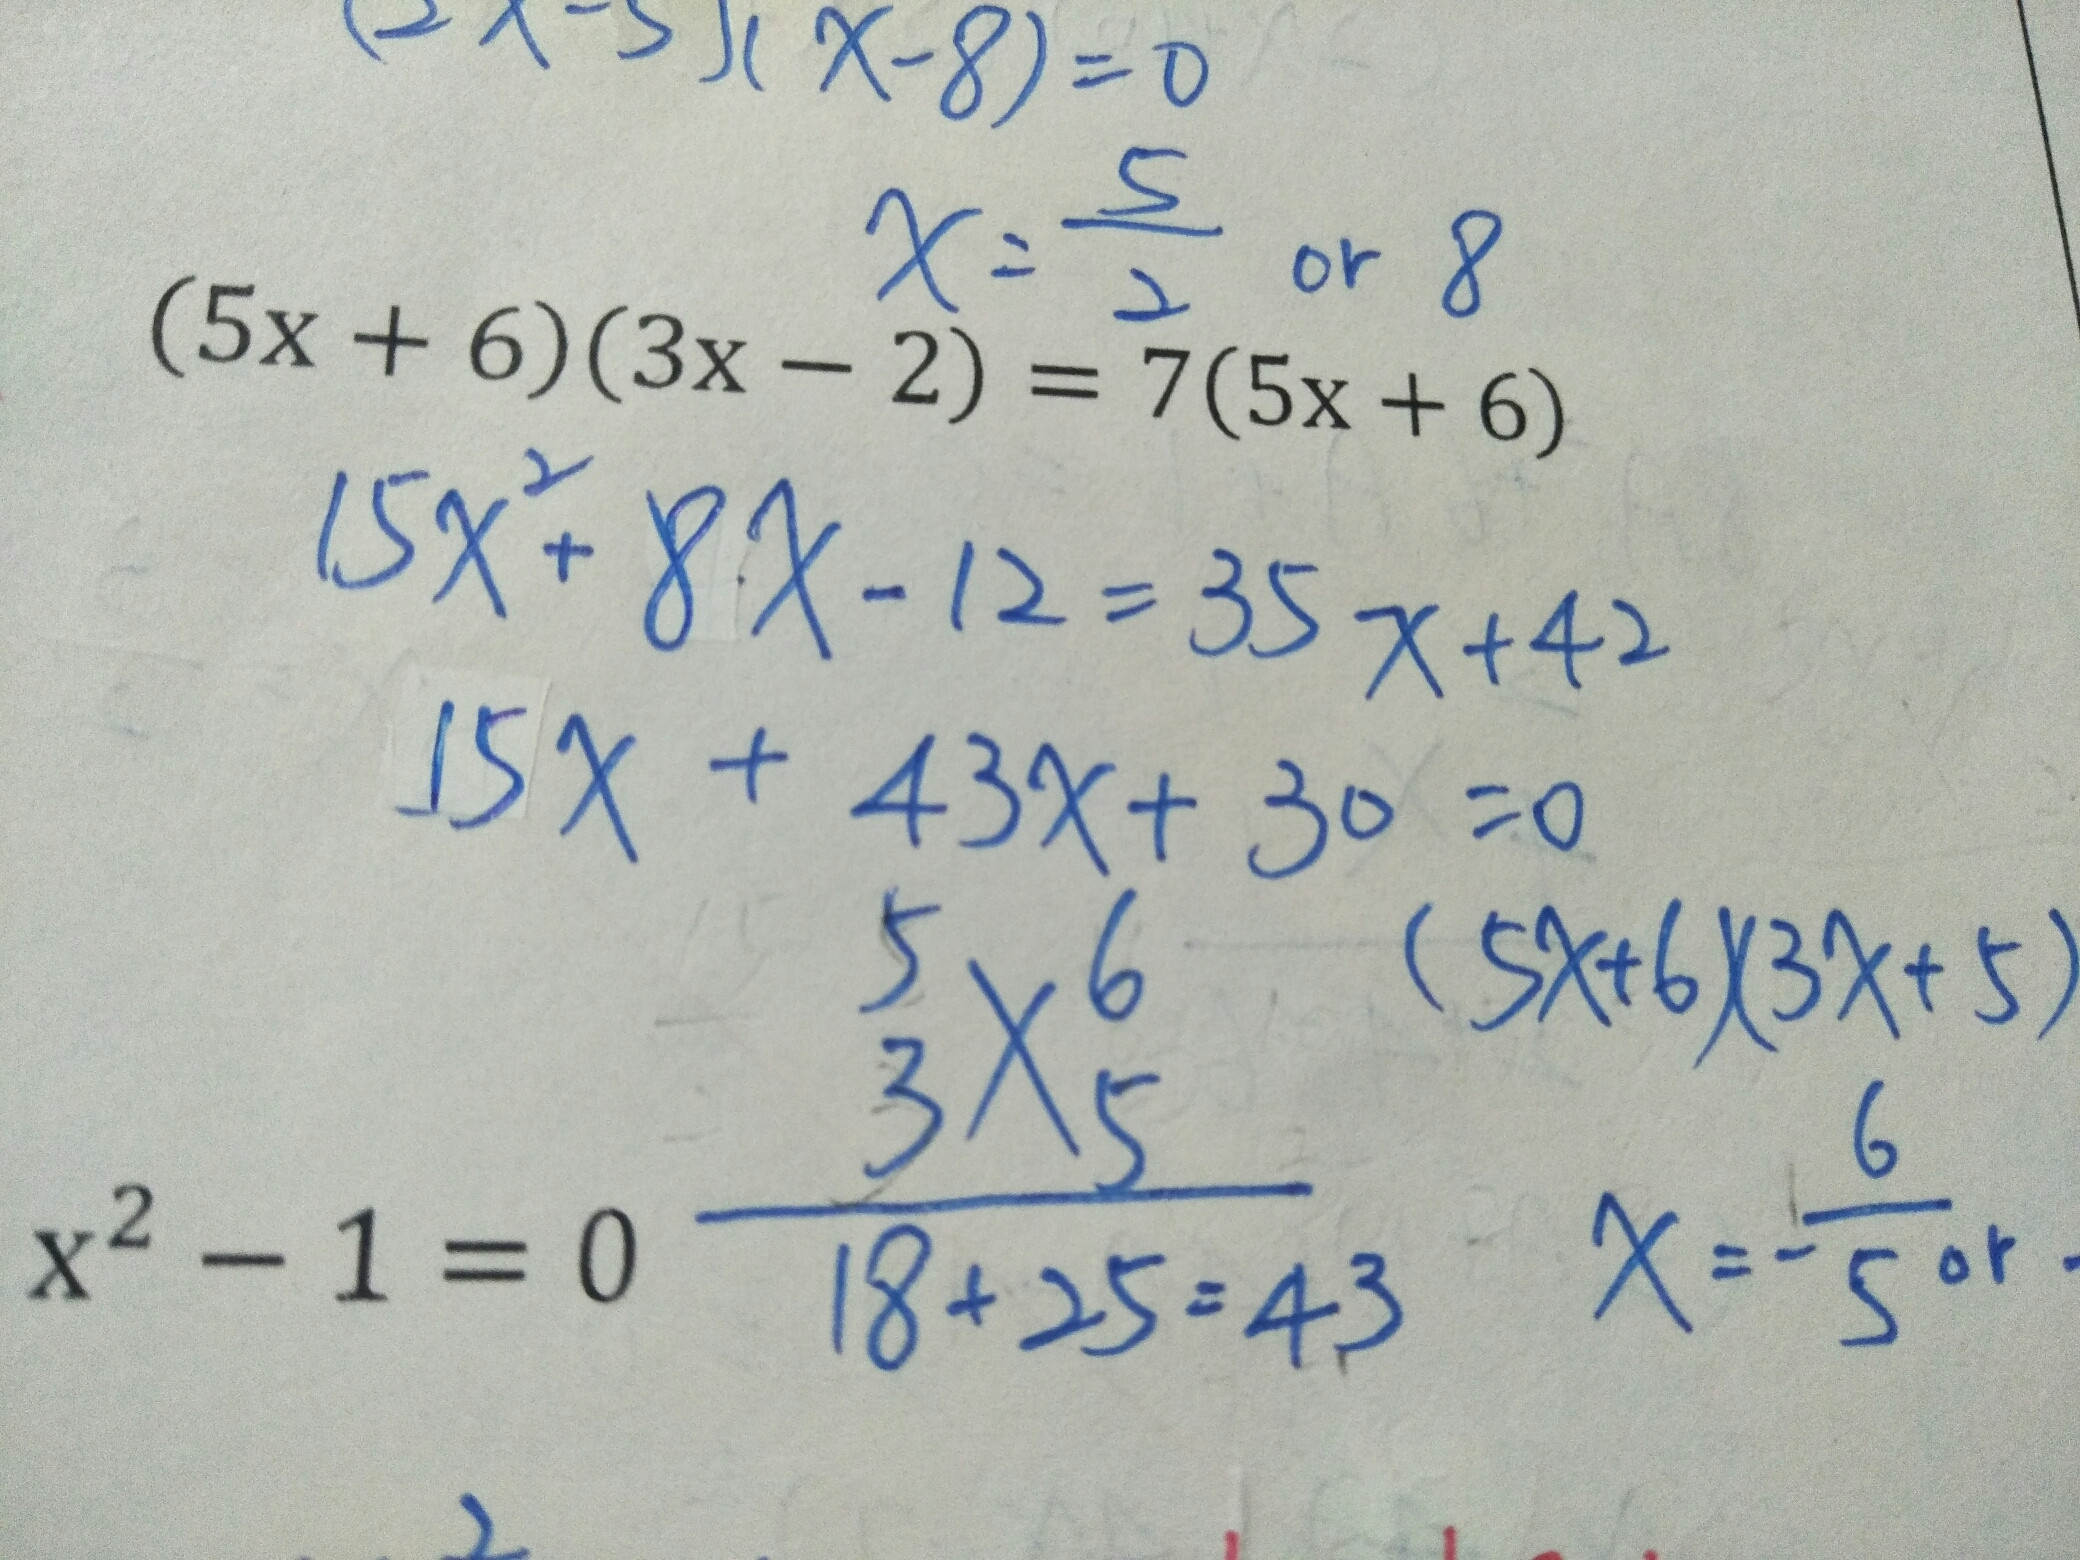 (2x-5)(x-8)=0
x=5/2 or 8
(5x + 6)(3x − 2) = 7(5x + 6)
15x²+8x-12=35x+42
15x + 43x+30=0
5 6 (5x+6)(3x+5)
3 5
x² − 1 = 0 18+25=43 x=-6/5 or -
2